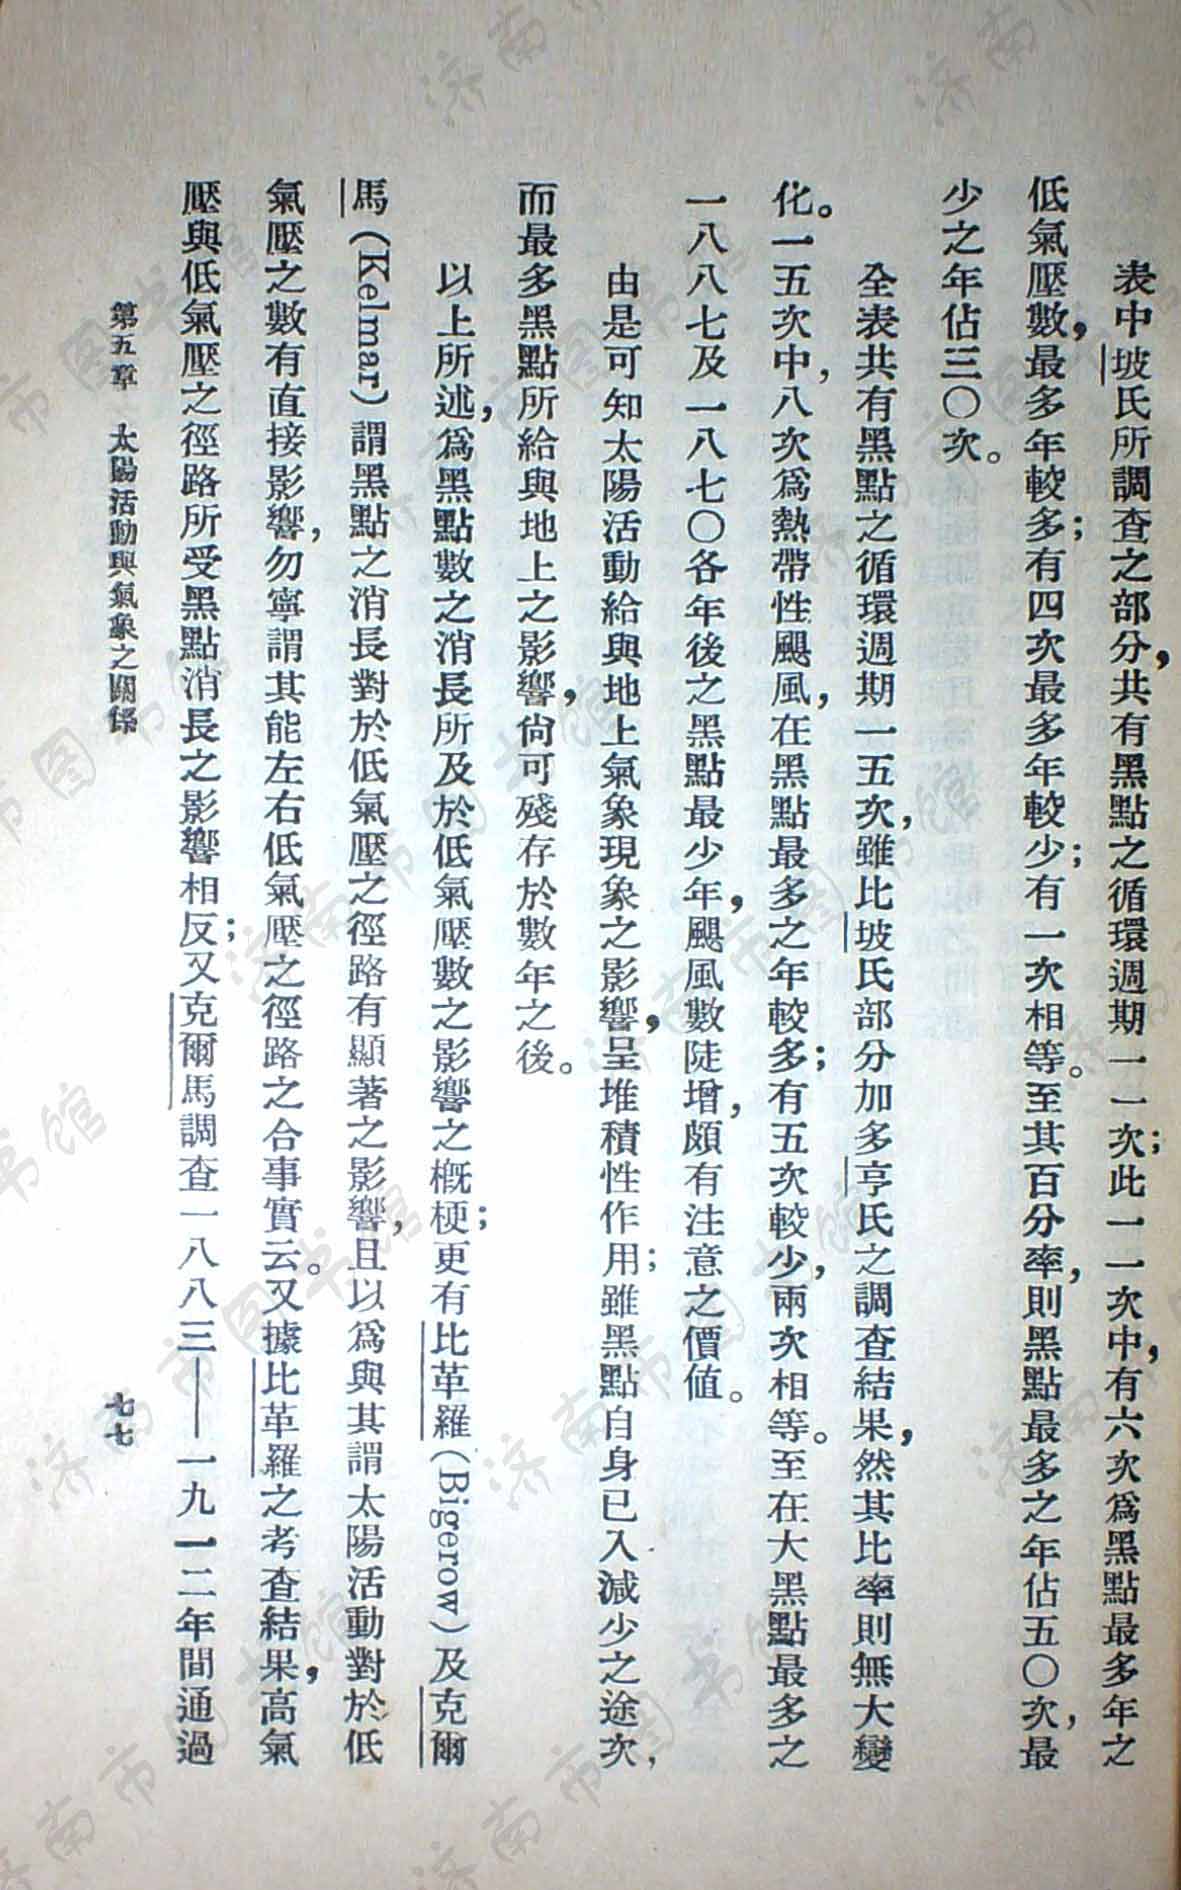 表中坡氏所調查之部分，共有黑點之循環週期一一次；此一一次中，有六次爲黑點最多年之
低氣壓數，最多年較多；有四次最多年較少；有一次相等。至其百分率，則黑點最多之年佔五〇次，最
少之年佔三〇次。
全表共有黑點之循環週期一五次，雖比坡氏部分加多亨氏之調查結果，然其比率則無大變
化。一五次中，八次爲熱帶性颶風，在黑點最多之年較多；有五次較少，兩次相等。至在大黑點最多之
一八八七及一八七〇各年後之黑點最少年，颶風數陡增，頗有注意之價值。
由是可知太陽活動給與地上氣象現象之影響，呈堆積性作用；雖黑點自身已入減少之途次，
而最多黑點所給與地上之影響，尙可殘存於數年之後。
以上所述，爲黑點數之消長所及於低氣壓數之影響之概梗；更有比革羅（Bigerow）及克爾
馬（Kelmar）謂黑點之消長對於低氣壓之徑路有顯著之影響，且以爲與其謂太陽活動對於低
氣壓之數有直接影響，勿寧謂其能左右低氣壓之徑路之合事實云。又據比革羅之考查結果，高氣
壓與低氣壓之徑路所受黑點消長之影響相反；又克爾馬調查一八八三——一九一二年間通過
第五章 太陽活動與氣象之關係
七七
济南市图书馆